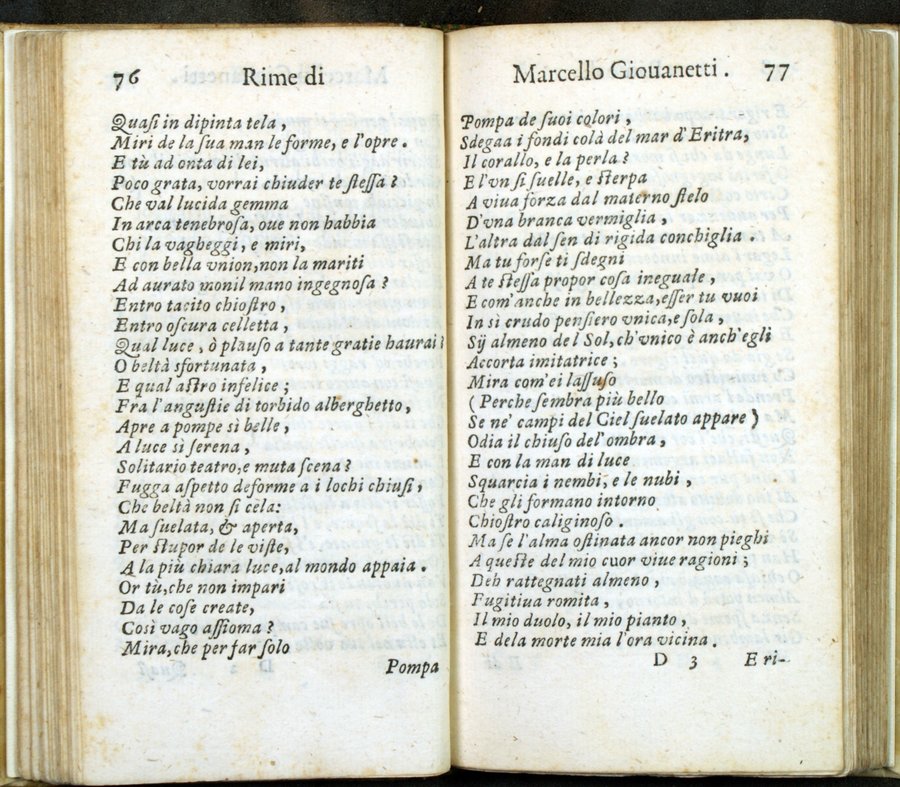 76 Rime di
Quaſi in dipinta tela,
Miri de la ſua man le forme, e l'opre.
E tù ad onta di lei,
Poco grata, vorrai chiuder te ſteſſa?
Che val lucida gemma
In arca tenebroſa, oue non habbia
Chi la vagheggi, e miri,
E con bella vnion, non la mariti
Ad aurato monil mano ingegnoſa?
Entro tacito chioſtro,
Entro oſcura celletta,
Qual luce, ò plauſo a tante gratie haurai?
O beltà sfortunata,
E qual aſtro infelice;
Fra l'anguſtie di torbido alberghetto,
Apre a pompe sì belle,
A luce sì ſerena,
Solitario teatro, e muta ſcena?
Fugga aſpetto deforme a i lochi chiuſi,
Che beltà non ſi cela:
Ma ſuelata, & aperta,
Per ſtupor de le viſte,
A la più chiara luce, al mondo appaia.
Or tù, che non impari
Da le coſe create,
Così vago aſſioma?
Mira, che per far ſolo
Pompa
Marcello Giouanetti. 77
Pompa de ſuoi colori,
Sdegaa i fondi colà del mar d'Eritra,
Il corallo, e la perla?
E l'vn ſi ſuelle, e ſterpa
A viua forza dal materno ſtelo
D'vna branca vermiglia,
L'altra dal ſen di rigida conchiglia.
Ma tu forſe ti ſdegni
A te ſteſſa propor coſa ineguale,
E com'anche in bellezza, eſſer tu vuoi
In sì crudo penſiero vnica, e ſola,
Sÿ almeno del Sol, ch'vnico è anch'egli
Accorta imitatrice;
Mira com'ei laſſuſo
(Perche ſembra più bello
Se ne' campi del Ciel ſuelato appare)
Odia il chiuſo del'ombra,
E con la man di luce
Squarcia i nembi, e le nubi,
Che gli formano intorno
Chioſtro caliginoſo.
Ma ſe l'alma oſtinata ancor non pieghi
A queſte del mio cuor viue ragioni;
Deh rattegnati almeno,
Fugitiua romita,
Il mio duolo, il mio pianto,
E dela morte mia l'ora vicina.
D 3 E ri-